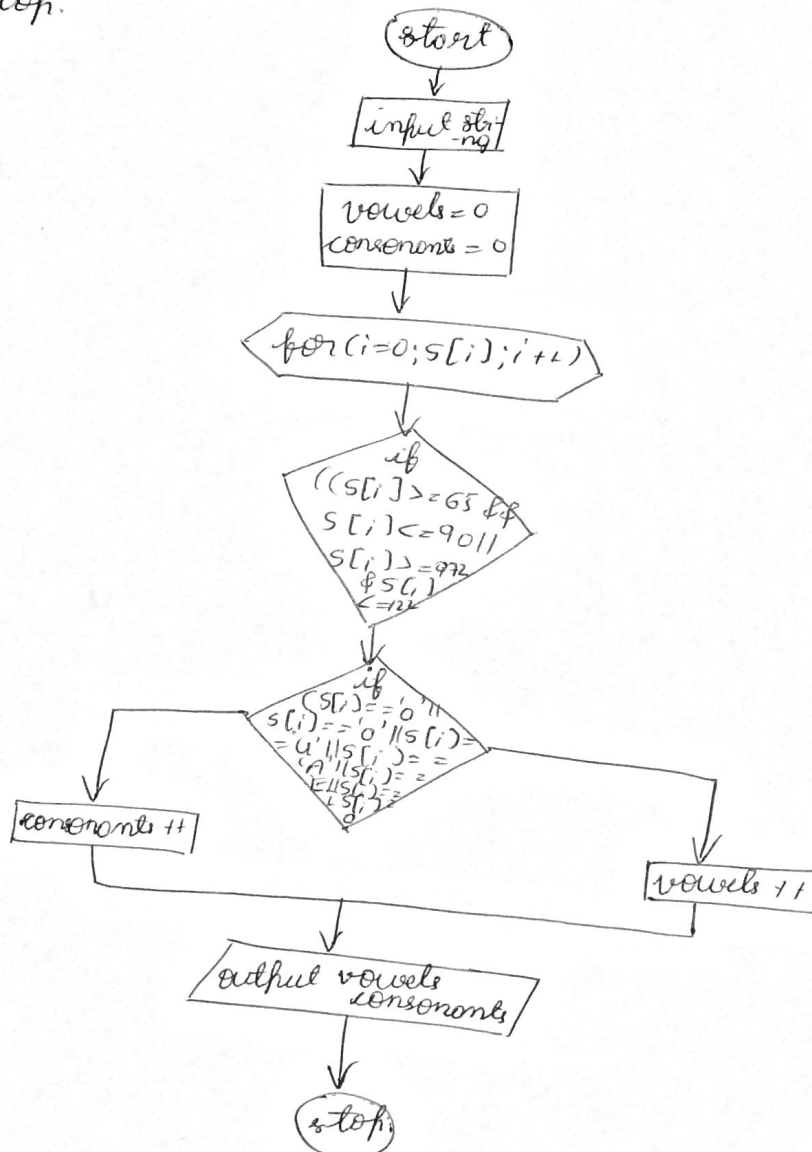 stop.
start
input stri-
-ng
vowels = 0
consonants = 0
for(i=0;s[i];i++)
if
((s[i]>=65 &&
s[i]<=90||
s[i]>=972
& s[i]
<=122
if
(s[i]=='o'||
s[i]=='o'||s[i]=
='u'||s[i]==
'A'||s[i]==
E||s[i]==
s[i]=
consonants ++
vowels ++
output vowels
consonants
stop.